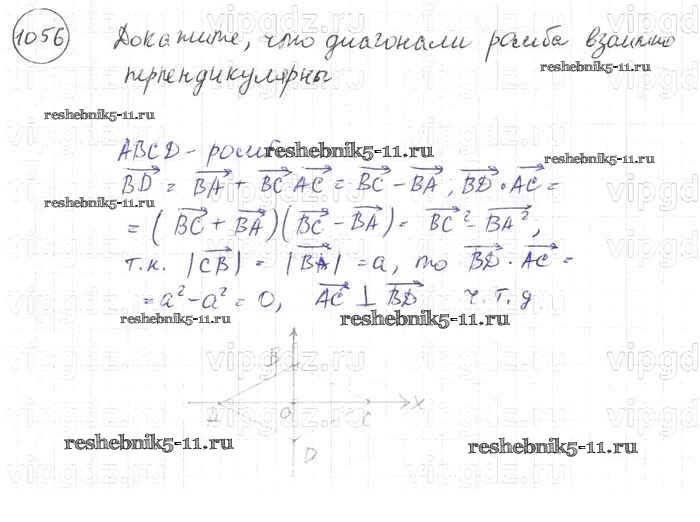 1056 Докажите, что диагонали ромба взаимно
перпендикулярны
reshebnik5-11.ru
reshebnik5-11.ru
ABCD - ромб
reshebnik5-11.ru
reshebnik5-11.ru
BD = BA + BC AC = BC - BA, BD · AC =
= (BC + BA)(BC - BA) = BC² - BA²,
т.к. |CB| = |BA| = a, то BD · AC =
= a² - a² = 0, AC ⊥ BD ч.т.д.
reshebnik5-11.ru
reshebnik5-11.ru
B
A O C X
D
reshebnik5-11.ru
reshebnik5-11.ru
vipgdz.ru